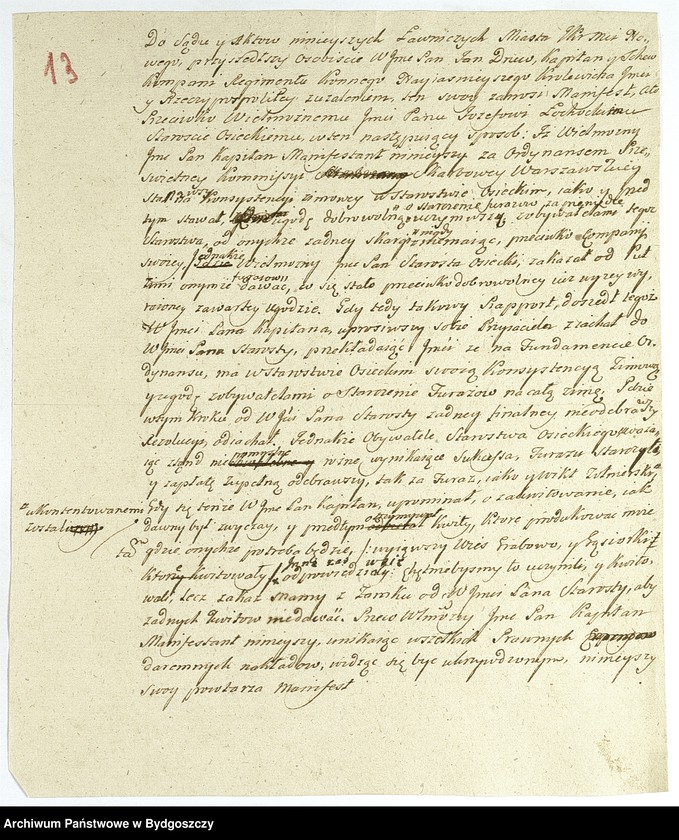 13
Do Sądu y Aktow ninieyszych Ławniczych Miasta No-
wego, przyszedłszy osobiscie W Jmc Pan Jan Kapitan y Szeff
Kompanii Regimentu Konnego Nayiasnieyszego Krolewica Jmci
y Rzeczypospolitey zażaleniem, ten swoy zanosi Manifest,
Przeciwko Wielmożnemu Jmci Panu Jozefowi
Staroscie Osieckiemu, w ten następuiący sposob: Iż Wielmożny
Jmc Pan Kapitan Manifestant ninieyszy za Ordynansem Prze-
swietney Kommissyi Skarbowey Warszawskiey
Konsystencyi zimowey w Starostwie Osieckim, iako y przed
tym stawał, ugodę dobrowolnie o starczenie furażu za pieniądze uczyniwszy, z obywatelami tegoż
Starostwa, od onychże żadney skargi nigdy niemaiąc, przeciwko Kompanij
swoiey, Jednakże Wielmożny Jmc Pan Starosta Osiecki, zakazał od
onymże dawać, co się stało przeciwko dobrowolney
zawartey ugodzie. Gdy tedy takowy Rapport, doszedł tegoż
W Jmci Pana Kapitana, uprosiwszy sobie Przyiaciela ziachał do
W Jmci Pana Starosty, przekładaiąc Jmci że na Fundamencie Or-
dynansu, ma w Starostwie Osieckim swoią Konsystencyą Zimową
y ugodę z obywatelami o Starczenie Furażow na całą zimę,
wszym kroku od W Jmci Pana Starosty żadney finalney nieodebrawszy
Rezolucyi, odiachał. Jednakże Obywatele Starostwa Osieckiego
iąc ztąd nie pomyslne wynikaiące Sukcessa, Furażu
y zapłatę zupełną odebrawszy, tak za Furaż, iako y wikt Żołnierski
ukontentowanemi
zostali
Gdy się tenże W Jmc Pan Kapitan, upominał, o zakwitowanie, iak
dawny był zwyczay, y przedtym otrzymywał kwity, ktore produkować może
gdzie onychże potrzeba będzie, /: wyiąwszy Wies Grabowo, y
ktore kwitowały Inne zas wsie odpowiedziały: Chętniebysmy to uczynili, y kwito-
wali, lecz zakaz mamy z Zamku od W Jmci Pana Starosty, aby
żadnych kwitow niedawać. Przeto Wielmożny Jmc Pan Kapitan
Manifestant ninieyszy, unikaiąc wszelkich Prawnych
daremnych nakładow, widząc się być ukrzywdzonym, ninieyszy
swoy powtarza Manifest
Archiwum Państwowe w Bydgoszczy